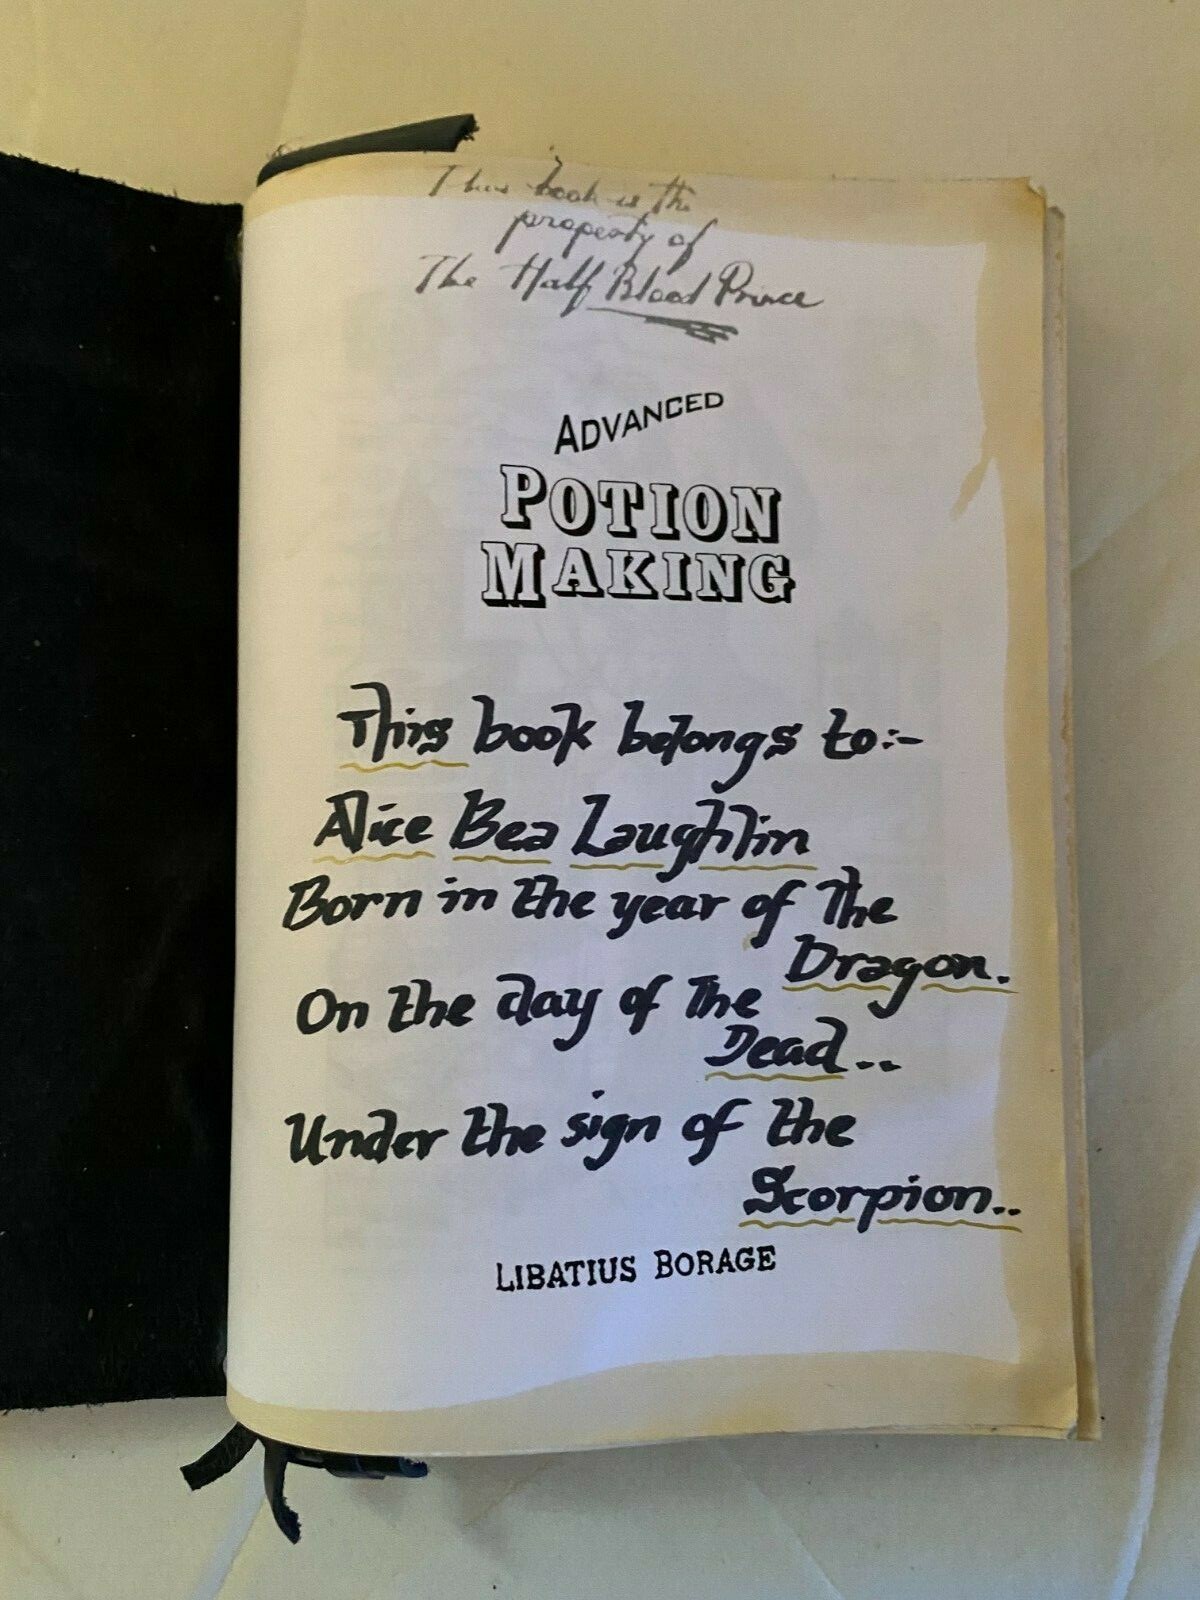 This book is the
property of
The Half Blood Prince
ADVANCED
POTION
MAKING
This book belongs to:-
Alice Bea Laughlin
Born in the year of The
Dragon.
On the day of The
Dead..
Under the sign of the
Scorpion..
LIBATIUS BORAGE